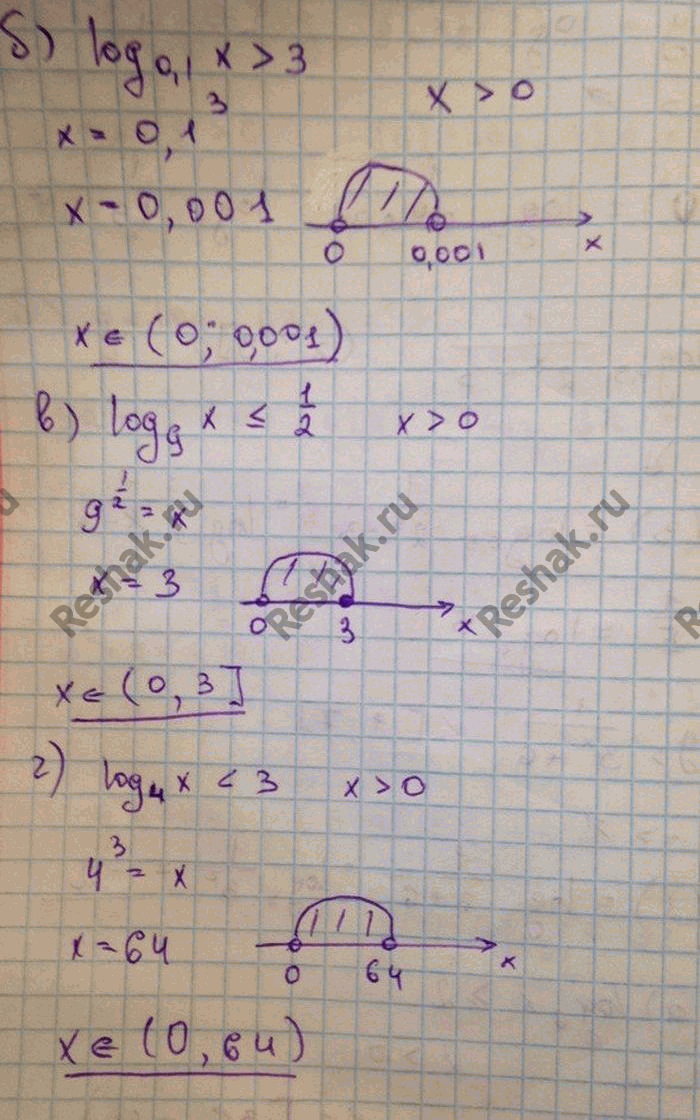 б) log₀,₁ x > 3 x > 0
x = 0,1³
x = 0,001
0 0,001 x
x ∈ (0; 0,001)
в) log₉ x ≤ 1/2 x > 0
9^(1/2) = x
x = 3
0 3 x
x ∈ (0, 3]
г) log₄ x < 3 x > 0
4³ = x
x = 64
0 64 x
x ∈ (0, 64)
Reshak.ru
Reshak.ru
Reshak.ru